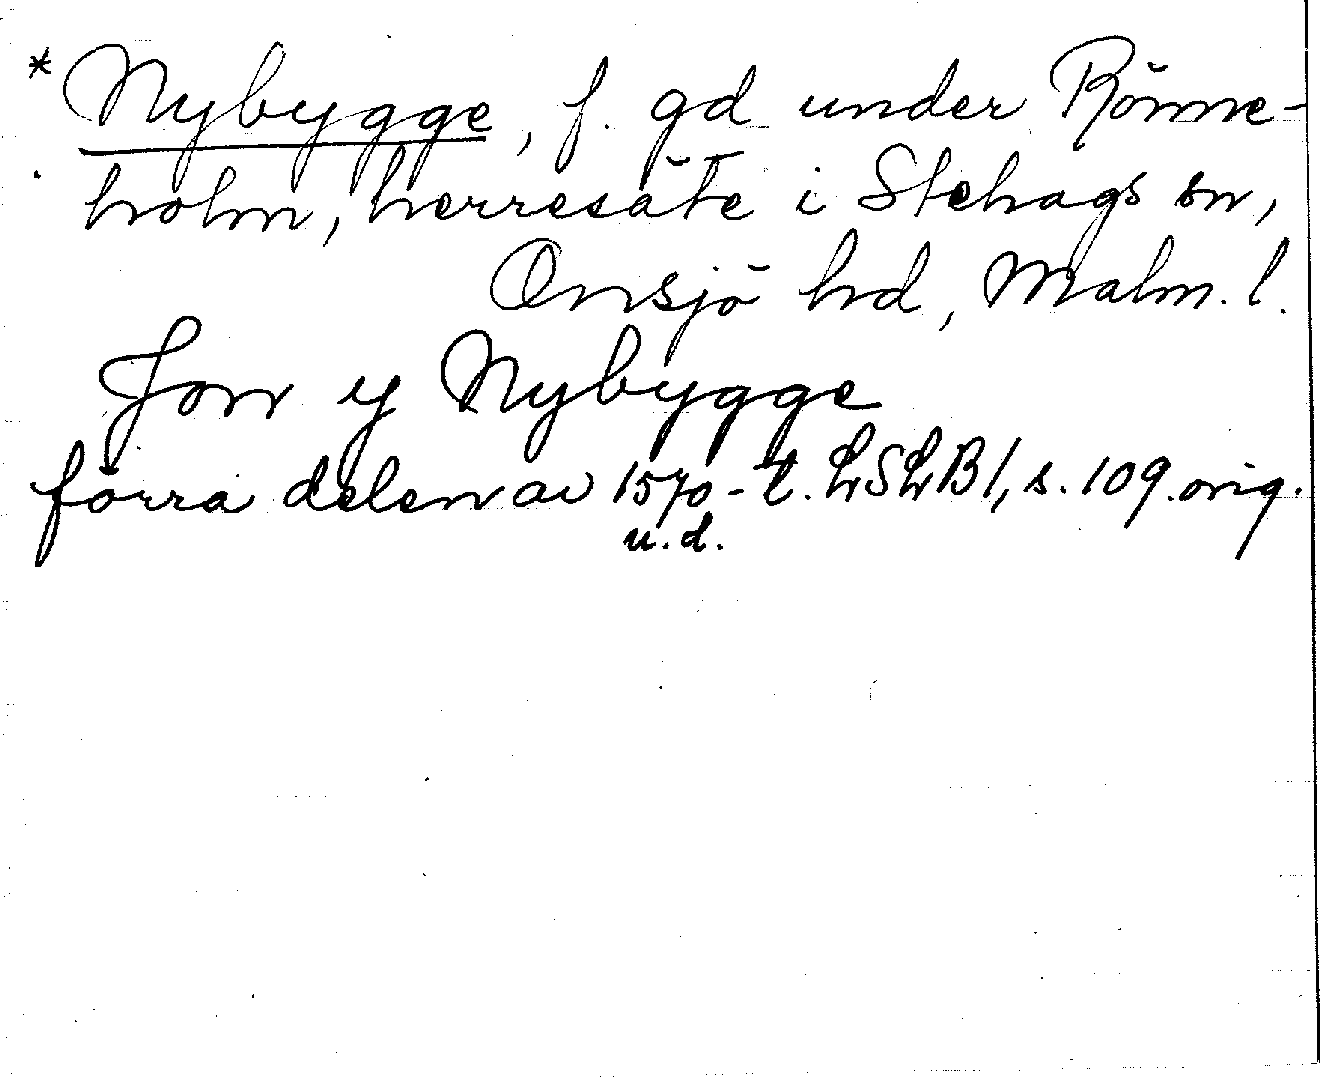 * Nybygge, f. gd under Rönne-
holm, herresäte i Stehags sn,
Onsjö hd, Malm. l.
Jon y Nybygge
förra delen av 1570-t. LSLB 1, s. 109. orig.
u. d.